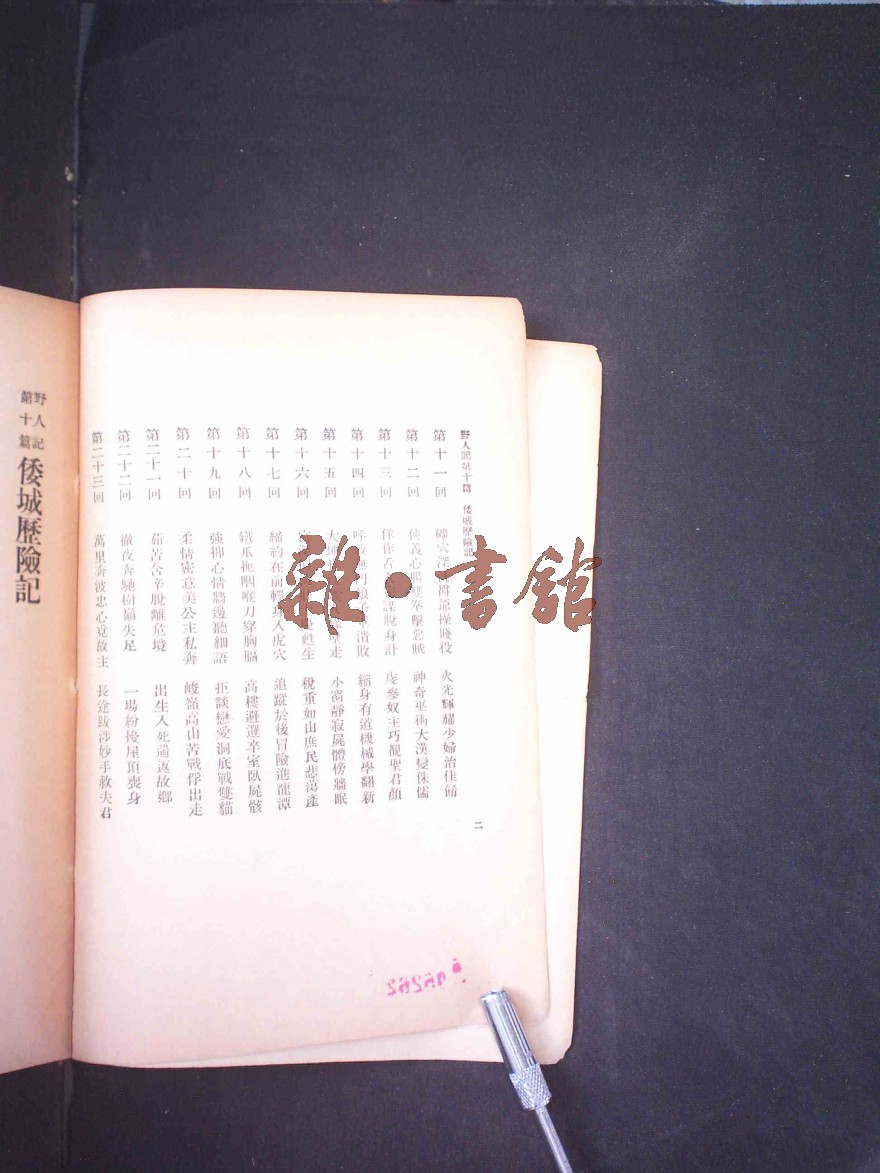 野人記第十篇 倭城歷險記
二
第十一回 礦穴深 操賤役 火光輝耀少婦治佳餚
第十二回 俠義心腸雙拳擊惡賊 神奇巫術大漢變侏儒
第十三回 佯作 謀脫身計 虔參奴主巧覩聖君顏
第十四回 潰敗 縮身有道機械學翻新
第十五回 走 小窗靜寂屍體傍牆眠
第十六回 甦生 稅重如山庶民悲蕩產
第十七回 綽約在前輕身入虎穴 追蹤於後冒險進龍潭
第十八回 鐵爪扼咽喉刀穿胸膈 高樓避邏卒室臥屍骸
第十九回 強抑心情牆邊聽細語 拒談戀愛洞底戰雙貓
第二十回 柔情密意美公主私奔 峻嶺高山苦戰俘出走
第二十一回 茹苦含辛脫離危境 出生入死遄返故鄉
第二十二回 徹夜奔馳樹巔失足 一場紛擾屋頂喪身
第二十三回 萬里奔波忠心覓故主 長途跋涉妙手救夫君
野人記
第十篇
倭城歷險記
雜·書館